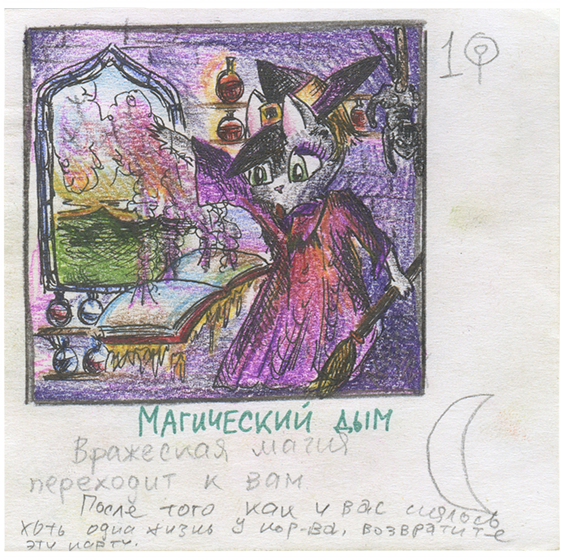 1
МАГИЧЕСКИЙ ДЫМ
Вражеская магия
переходит к вам
После того как у вас
хоть одна жизнь у кор-ва, возвратите
эту карту.